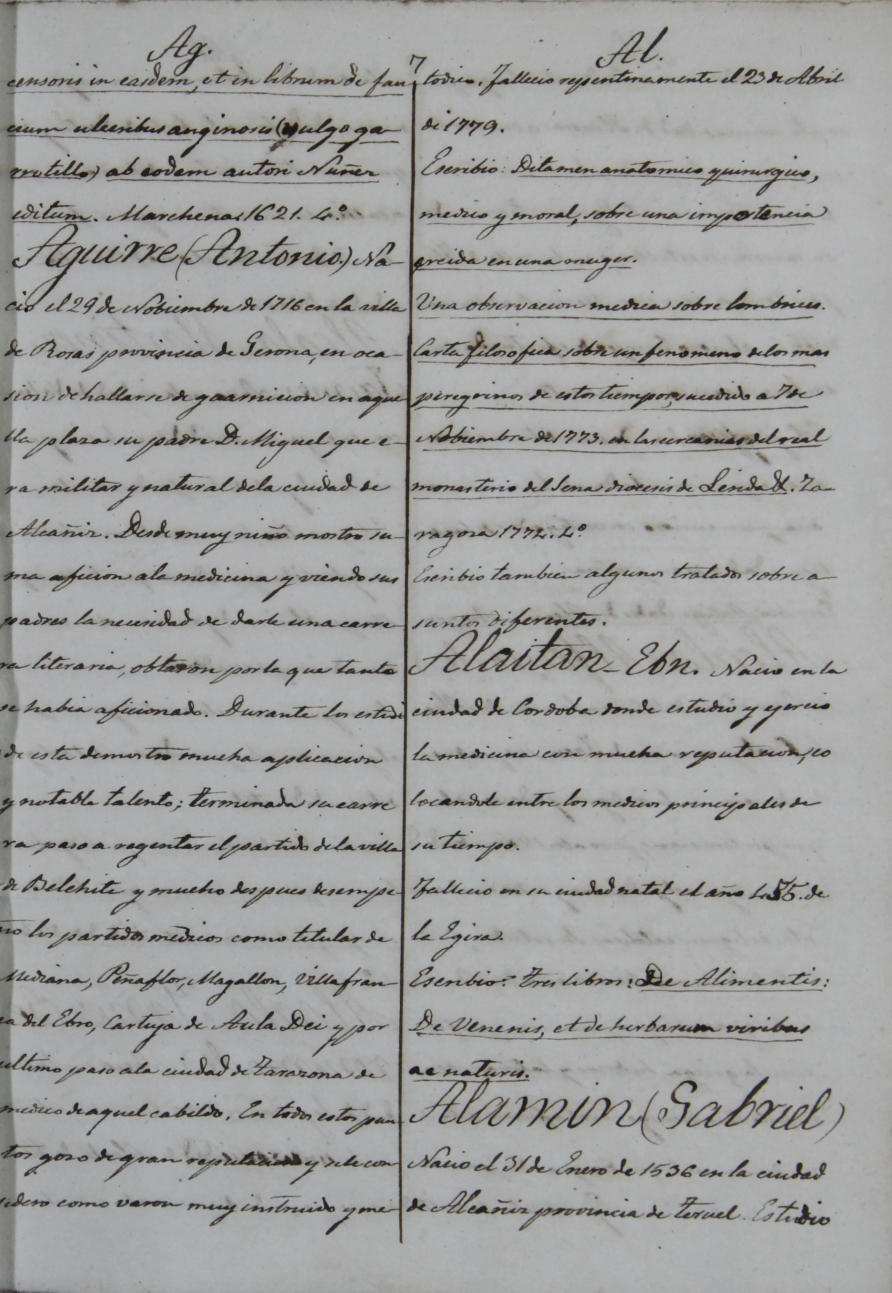 Ag.
censoris in easdem, et in librum de fau
cium ulceribus anginosis (vulgo ga-
rrotillo) ab eodem autori Nuñez
editum. Marchena 1621. 4.º
Aguirre (Antonio.) Na-
cio el 29 de Nobiembre de 1716 en la villa
de Rosas provincia de Gerona, en oca-
sion de hallarse de guarnicion en aque
lla plaza su padre D. Miguel que e-
ra militar y natural dela ciudad de
Alcañiz. Desde muy niño mostro su-
ma aficion ala medicina y viendo sus
padres la necesidad de darle una carre
ra literaria, obtaron por la que tanto
se habia aficionado. Durante los estudi
de esta demostro mucha aplicacion
y notable talento; terminada su carre
ra paso a regentar el partido de la villa
de Belchite y mucho despues desempe-
ño los partidos medicos como titular de
Mediana, Peñaflor, Magallon, Villafran-
ca del Ebro, Cartuja de Aula Dei y por
ultimo paso ala ciudad de Tarazona de
medico de aquel cabildo. En todos estos pun
tos gozo de gran reputacion y se le con
sidero como varon muy instruido y me-
7
Al.
todico. Fallecio repentinamente el 23 de Abril
de 1779.
Escribio: Ditamen anatomico quirurgico,
medico y moral, sobre una impotencia
creida en una muger.
Una observacion medica sobre lombrices.
Carta filosofica sobre un fenomeno de los mas
peregrinos de estos tiempos, sucedido a 7 de
Nobiembre de 1773. en las cercanias del real
monasterio del Sena diocesis de Lerida &. Za-
ragoza 1774. 4.º
Escribio tambien algunos tratados sobre a-
suntos diferentes.
Alaitan-Ebn. Nacio en la
ciudad de Cordoba donde estudio y ejercio
la medicina con mucha reputacion, co
locandole entre los medicos principales de
su tiempo.
Fallecio en su ciudad natal el año 455. de
la Egira.
Escribio: Tres libros: De Alimentis:
De Venenis, et de herbarum viribus
ac naturis.
Alamin (Gabriel)
Nacio el 31 de Enero de 1536 en la ciudad
de Alcañiz provincia de Teruel. Estudio